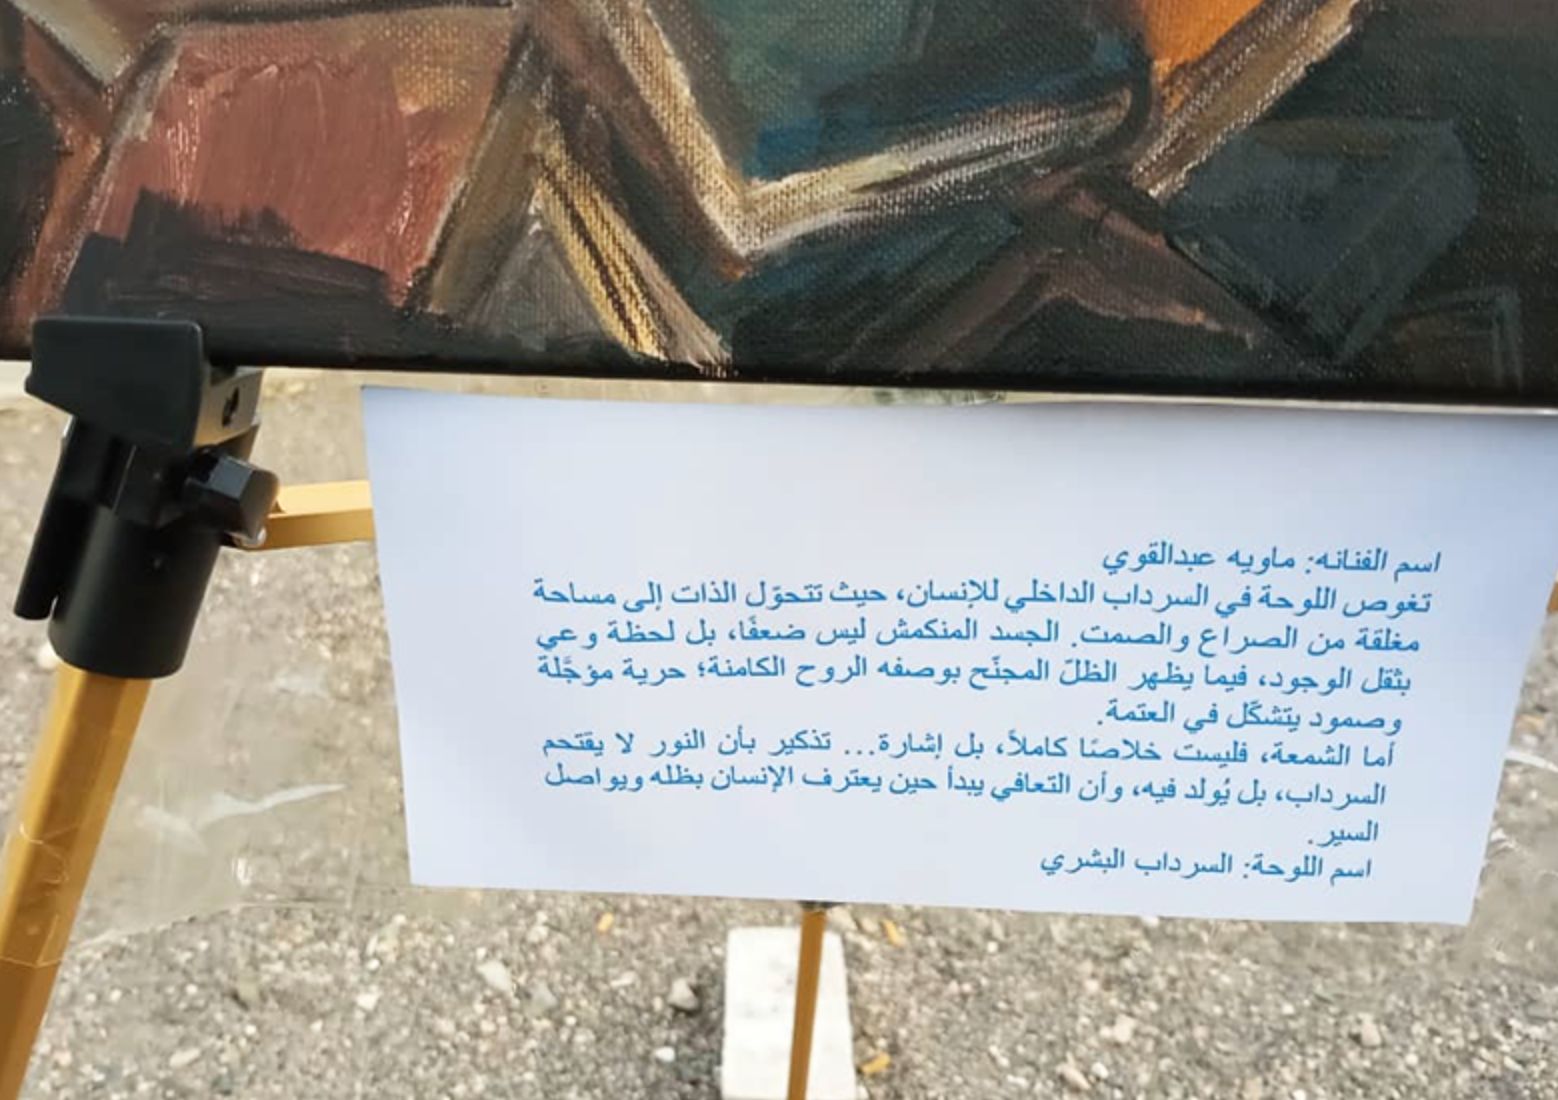 اسم الفنانه: ماويه عبدالقوي
تغوص اللوحة في السرداب الداخلي للإنسان، حيث تتحوّل الذات إلى مساحة
مغلقة من الصراع والصمت. الجسد المنكمش ليس ضعفًا، بل لحظة وعي
بثقل الوجود، فيما يظهر الظلّ المجنّح بوصفه الروح الكامنة؛ حرية مؤجَّلة
وصمود يتشكّل في العتمة.
أما الشمعة، فليست خلاصًا كاملاً، بل إشارة... تذكير بأن النور لا يقتحم
السرداب، بل يُولد فيه، وأن التعافي يبدأ حين يعترف الإنسان بظله ويواصل
السير.
اسم اللوحة: السرداب البشري